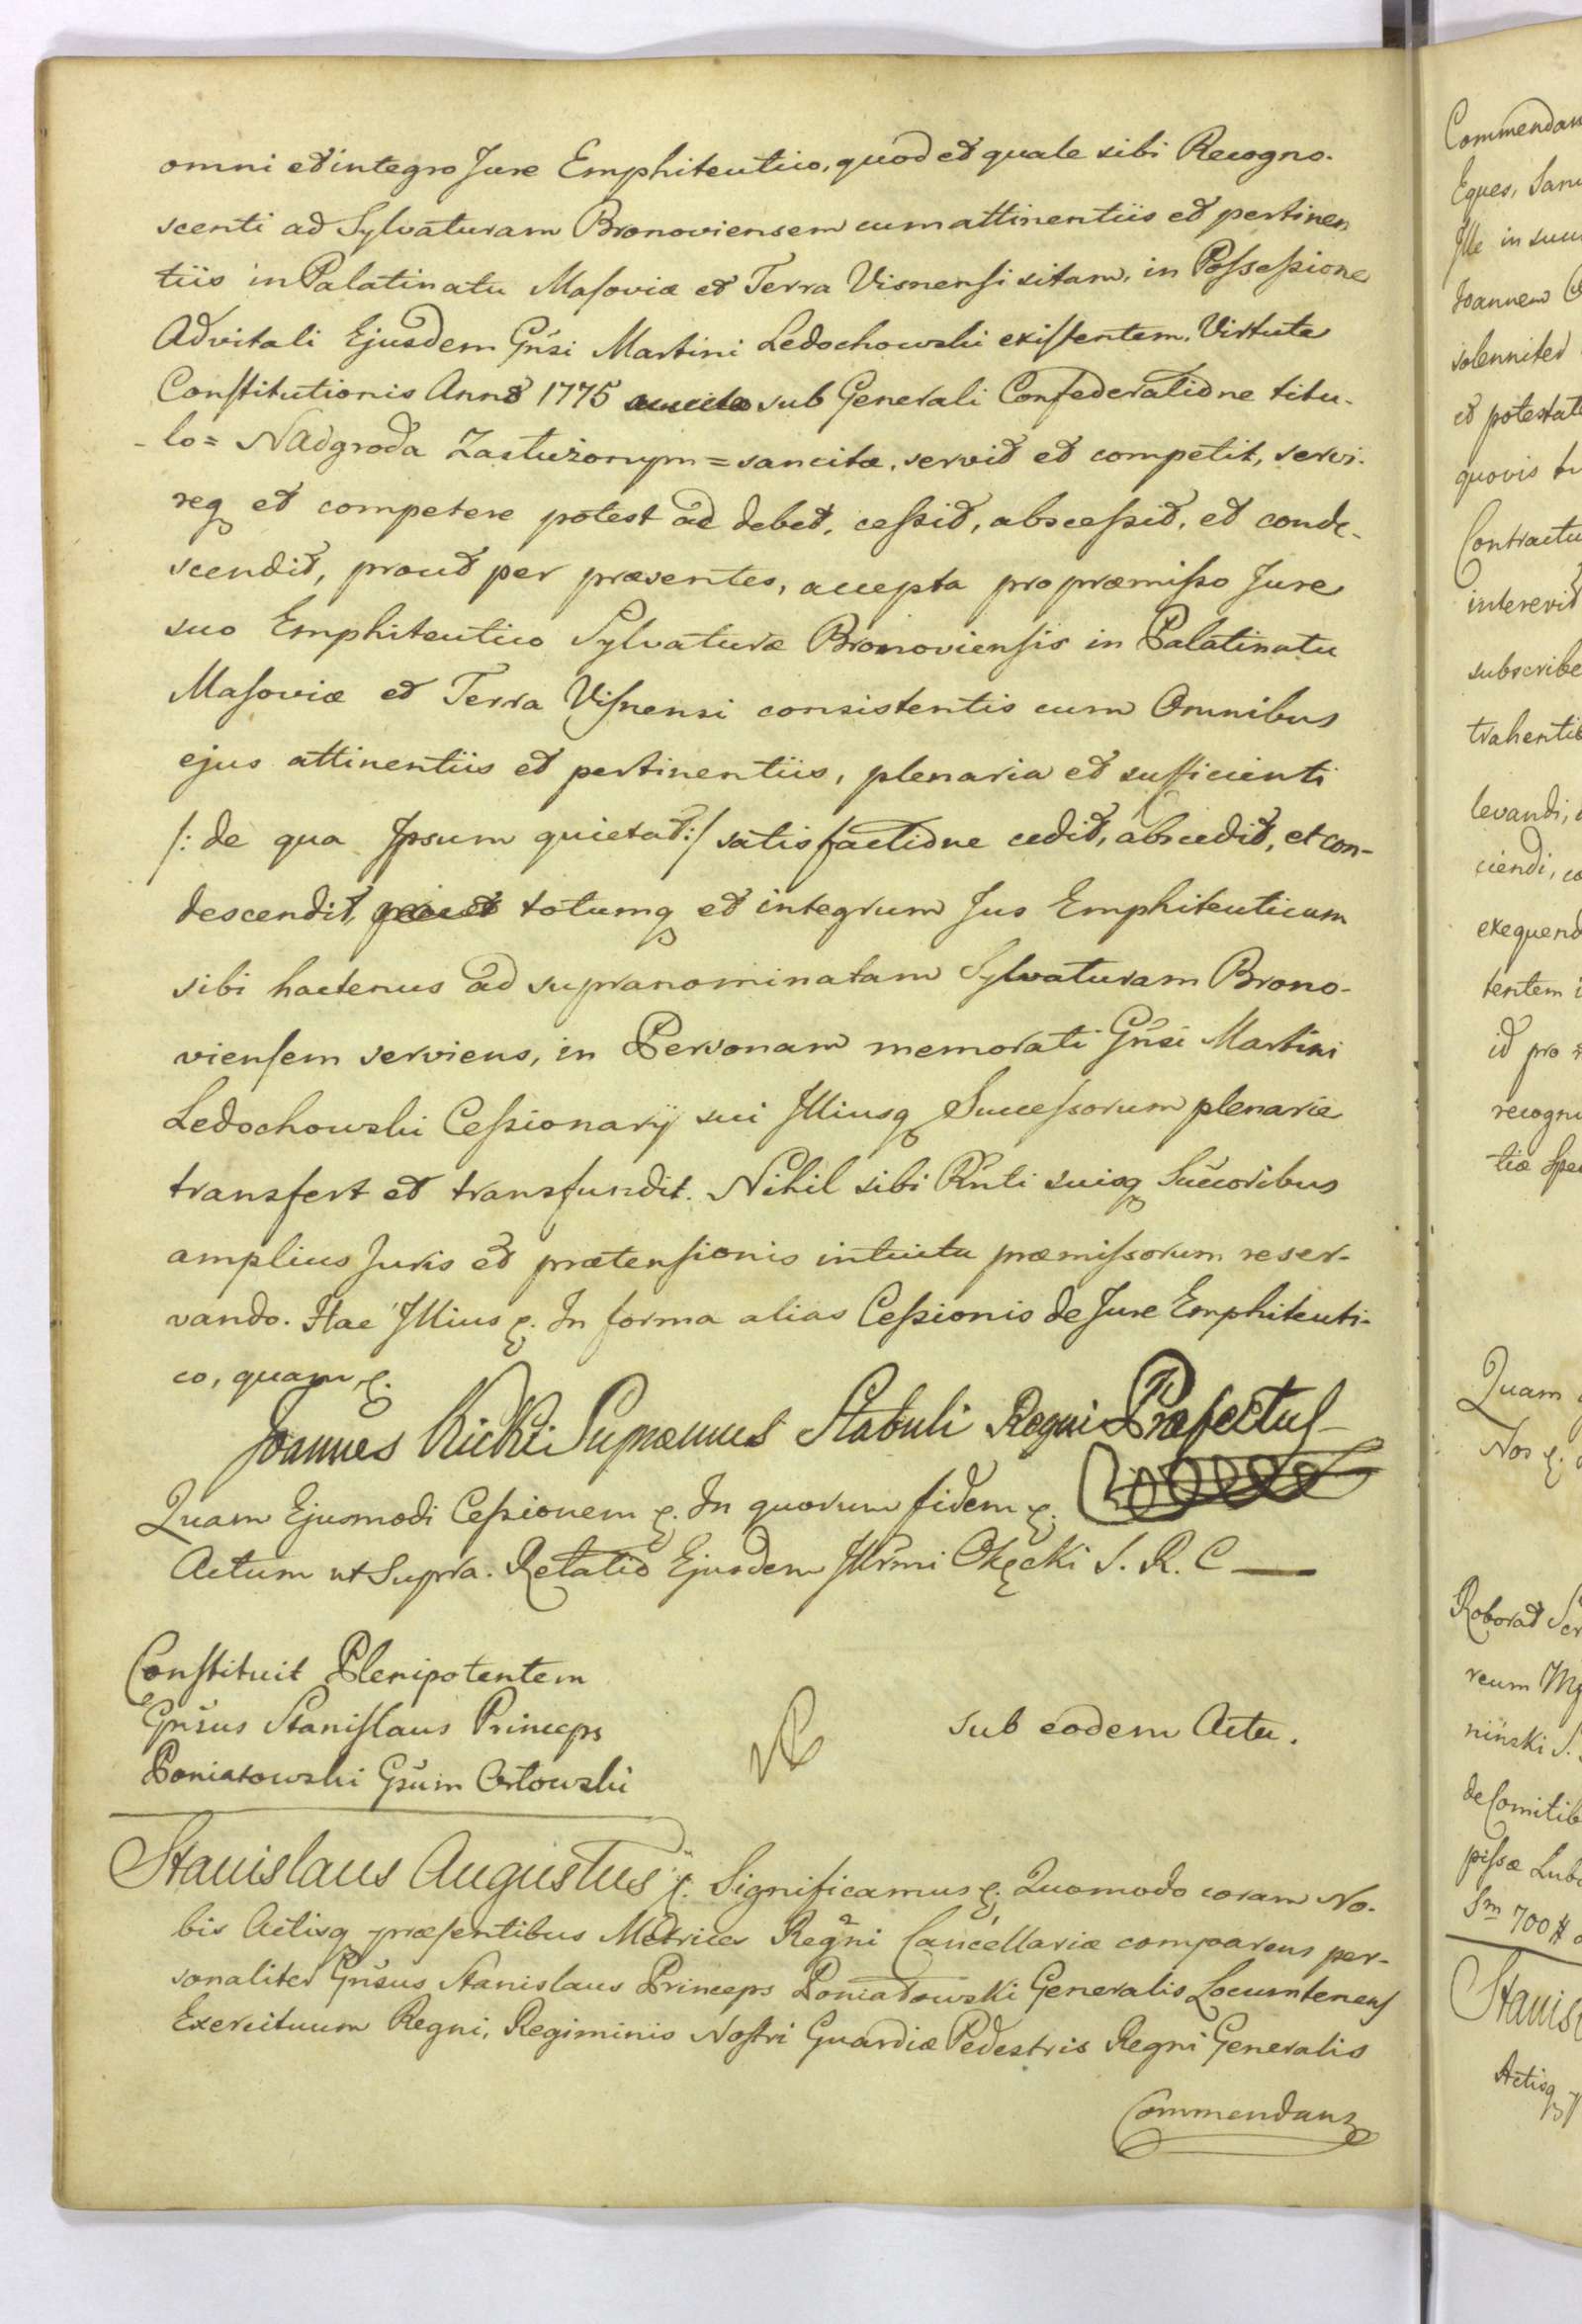 omni et integro Jure Emphiteutico, quod et quale sibi Recogno-
scenti ad Sylvaturam Bronoviensem cum attinentiis et pertinen
tiis in Palatinatu Masoviæ et Terra Visnensi sitam, in Possessione
Advitali Ejusdem Gnsi Martini Ledochowski existentem, Virtute
Constitutionis Anno 1775 sub Generali Confederatione titu-
-lo = Nadgroda Zasłużonym = sancitæ, servit et competit, servi-
req et competere potest ac debet, cessit, abscessit, et conde-
scendit, prout per præsentes, accepta pro præmisso Jure
suo Emphiteutico Sylvaturæ Bronoviensis in Palatinatu
Masoviæ et Terra Visnensi consistentis cum Omnibus
ejus attinentiis et pertinentiis, plenaria et sufficienti
/: de qua Ipsum quietat :/ satisfactione cedit, abscedit, et con-
descendit, totumq et integrum Jus Emphiteuticum
sibi hactenus ad supranominatam Sylvaturam Brono-
viensem serviens, in Personam memorati Gnsi Martini
Ledochowski Cessionarij sui Illiusq Successorum plenarie
transfert et transfundit. Nihil sibi Rnti suisq Succoribus
amplius Juris et prætensionis intuitu præmissorum reser-
vando. Hac Illius &. In forma alias Cessionis de Jure Emphiteuti-
co, quam &.
Joannes Kicki Supremus Stabuli Regni Præfectus
Quam Ejusmodi Cessionem &. In quorum fidem &.
Actum ut Supra. Relatio Ejusdem Illrmi Okęcki S. R. C
Constituit Plenipotentem
Gnsus Stanislaus Princeps
Poniatowski Gsum Orłowski
Sub eodem Actu.
Stanislaus Augustus &. Significamus &. Quomodo coram No-
bis Actisq præsentibus Metrices Regni Cancellariæ comparens per-
sonaliter Gnsus Stanislaus Princeps Poniatowski Generalis Locumtenens
Exercituum Regni, Regiminis Nostri Guardiæ Pedestris Regni Generalis
Commendans